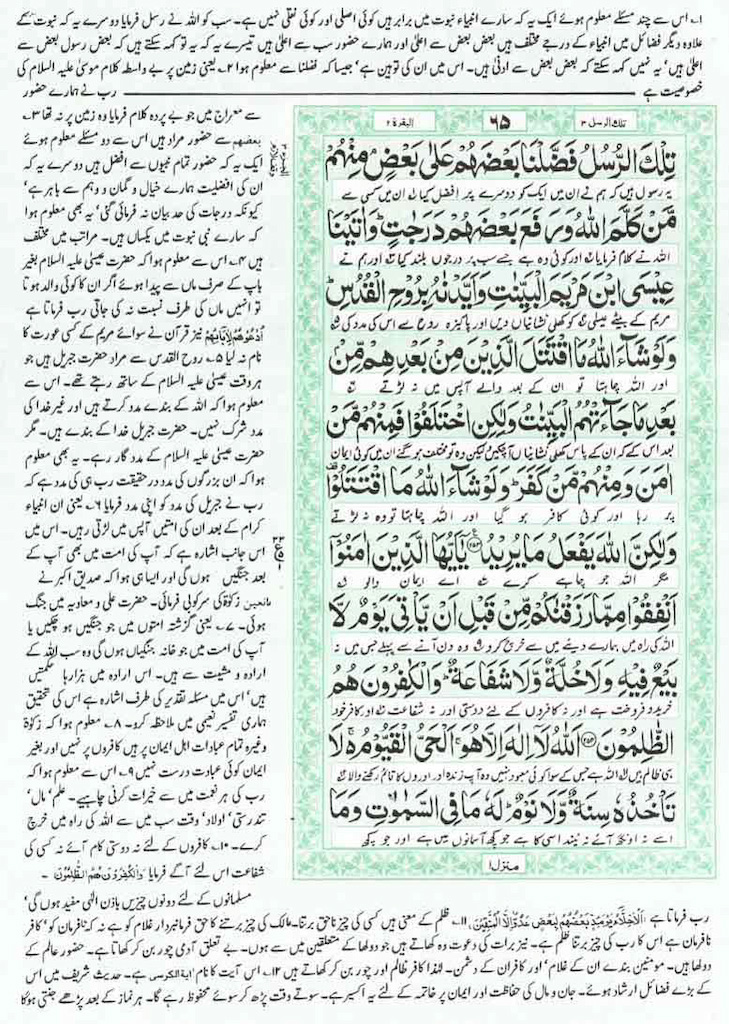 ۱۔ اس سے چند مسئلے معلوم ہوئے ایک یہ کہ سارے انبیاء نبوت میں برابر ہیں کوئی اصلی اور کوئی نقلی نہیں ہے۔ سب کو اللہ نے رسل فرمایا دوسرے یہ کہ نبوت کے
علاوہ دیگر فضائل میں انبیاء کے درجے مختلف ہیں بعض بعض سے اعلیٰ اور ہمارے حضور سب سے اعلیٰ ہیں تیسرے یہ کہ یہ تو کہہ سکتے ہیں کہ بعض رسول بعض سے
اعلیٰ ہیں' یہ نہیں کہہ سکتے کہ بعض بعض سے ادنیٰ ہیں۔ اس میں ان کی توہین ہے' جیسا کہ فضلنا سے معلوم ہوا ۲۔ یعنی زمین پر بے واسطہ کلام موسیٰ علیہ السلام کی
خصوصیت ہے رب نے ہمارے حضور
سے معراج میں جو بے پردہ کلام فرمایا وہ زمین پر نہ تھا ۳۔
بعضھم سے حضور مراد ہیں اس سے دو مسئلے معلوم ہوئے
ایک یہ کہ حضور تمام نبیوں سے افضل ہیں دوسرے یہ کہ
ان کی افضلیت ہمارے خیال و گمان و وہم سے باہر ہے'
کیونکہ درجات کی حد بیان نہ فرمائی گئی' یہ بھی معلوم ہوا
کہ سارے نبی نبوت میں یکساں ہیں۔ مراتب میں مختلف
ہیں ۴۔ اس سے معلوم ہوا کہ حضرت عیسیٰ علیہ السلام بغیر
باپ کے صرف ماں سے پیدا ہوئے اگر ان کا کوئی والد ہوتا
تو انہیں ماں کی طرف نسبت نہ کی جاتی رب فرماتا ہے
اُدْعُوْهُمْ لِاٰبَآئِهِمْ نیز قرآن نے سوائے مریم کے کسی عورت کا
نام نہ لیا ۵۔ روح القدس سے مراد حضرت جبریل ہیں جو
ہر وقت عیسیٰ علیہ السلام کے ساتھ رہتے تھے۔ اس سے
معلوم ہوا کہ اللہ کے بندے مدد کرتے ہیں اور غیر خدا کی
مدد شرک نہیں۔ حضرت جبریل خدا کے بندے ہیں۔ مگر
حضرت عیسیٰ علیہ السلام کے مددگار رہے۔ یہ بھی معلوم
ہوا کہ ان بزرگوں کی مدد در حقیقت رب ہی کی مدد ہے کہ
رب نے جبریل کی مدد کو اپنی مدد فرمایا ۶۔ یعنی ان انبیاء
کرام کے بعد ان کی امتیں آپس میں لڑتی رہیں۔ اس میں
اس جانب اشارہ ہے کہ آپ کی امت میں بھی آپ کے
بعد جنگیں ہوں گی اور ایسا ہی ہوا کہ صدیق اکبر نے
مانعین زکوٰۃ کی سرکوبی فرمائی۔ حضرت علی و معاویہ میں جنگ
ہوئی۔ ۷۔ یعنی گزشتہ امتوں میں جو جنگیں ہو چکیں یا
آپ کی امت میں جو خانہ جنگیاں ہوں گی وہ سب اللہ کے
ارادہ و مشیت سے ہیں۔ اس ارادہ میں ہزارہا حکمتیں
ہیں' اس میں مسئلہ تقدیر کی طرف اشارہ ہے اس کی تحقیق
ہماری تفسیر نعیمی میں ملاحظہ کرو۔ ۸۔ معلوم ہوا کہ زکوٰۃ
وغیرہ تمام عبادات اہل ایمان پر ہیں کافروں پر نہیں اور بغیر
ایمان کوئی عبادت درست نہیں ۹۔ اس سے معلوم ہوا کہ
رب کی ہر نعمت میں سے خیرات کرنی چاہیے۔ علم' مال'
تندرستی' اولاد' وقت سب میں سے اللہ کی راہ میں خرچ
کرے۔ ۱۰۔ کافروں کے لئے نہ دوستی کام آئے نہ کسی کی
شفاعت اس لئے آگے فرمایا وَالْكٰفِرُوْنَ هُمُ الظّٰلِمُوْنَ۔
مسلمانوں کے لئے دونوں چیزیں باذن الٰہی مفید ہوں گی'
تلك الرسل ۳ ۶۵ البقرة ۲
تِلْكَ الرُّسُلُ فَضَّلْنَا بَعْضَهُمْ عَلٰى بَعْضٍ مِنْهُمْ
یہ رسول ہیں کہ ہم نے ان میں ایک کو دوسرے پر افضل کیا ان میں کسی سے
مَّنْ كَلَّمَ اللّٰهُ وَرَفَعَ بَعْضَهُمْ دَرَجٰتٍ وَاٰتَيْنَا
اللہ نے کلام فرمایا اور کوئی وہ ہے جسے سب پر درجوں بلند کیا اور ہم نے
عِيْسَى ابْنَ مَرْيَمَ الْبَيِّنٰتِ وَاَيَّدْنٰهُ بِرُوْحِ الْقُدُسِ
مریم کے بیٹے عیسیٰ کو کھلی نشانیاں دیں اور پاکیزہ روح سے اس کی مدد کی
وَلَوْ شَآءَ اللّٰهُ مَا اقْتَتَلَ الَّذِيْنَ مِنْ بَعْدِهِمْ مِّنْ
اور اللہ چاہتا تو ان کے بعد والے آپس میں نہ لڑتے
بَعْدِ مَا جَآءَتْهُمُ الْبَيِّنٰتُ وَلٰكِنِ اخْتَلَفُوْا فَمِنْهُمْ مَّنْ
بعد اس کے کہ ان کے پاس کھلی نشانیاں آچکیں لیکن وہ تو مختلف ہوگئے ان میں کوئی ایمان
اٰمَنَ وَمِنْهُمْ مَّنْ كَفَرَ وَلَوْ شَآءَ اللّٰهُ مَا اقْتَتَلُوْا
پر رہا اور کوئی کافر ہو گیا اور اللہ چاہتا تو وہ نہ لڑتے
وَلٰكِنَّ اللّٰهَ يَفْعَلُ مَا يُرِيْدُ ﴿۲۵۳﴾ يٰٓاَيُّهَا الَّذِيْنَ اٰمَنُوْٓا
مگر اللہ جو چاہے کرے اے ایمان والو
اَنْفِقُوْا مِمَّا رَزَقْنٰكُمْ مِّنْ قَبْلِ اَنْ يَّاْتِيَ يَوْمٌ لَّا
اللہ کی راہ میں ہمارے دیئے میں سے خرچ کرو وہ دن آنے سے پہلے جس میں نہ
بَيْعٌ فِيْهِ وَلَا خُلَّةٌ وَّلَا شَفَاعَةٌ وَالْكٰفِرُوْنَ هُمُ
خرید و فروخت ہے اور نہ کافروں کے لئے دوستی اور نہ شفاعت اور کافر خود
الظّٰلِمُوْنَ ﴿۲۵۴﴾ اَللّٰهُ لَآ اِلٰهَ اِلَّا هُوَ اَلْحَيُّ الْقَيُّوْمُ لَا
ہی ظالم ہیں اللہ ہے جس کے سوا کوئی معبود نہیں وہ آپ زندہ اور اوروں کا قائم رکھنے والا
تَاْخُذُهٗ سِنَةٌ وَّلَا نَوْمٌ لَهٗ مَا فِي السَّمٰوٰتِ وَمَا
اسے نہ اونگھ آئے نہ نیند اسی کا ہے جو کچھ آسمانوں میں ہے اور جو کچھ
منزل۱
رب فرماتا ہے اَلْاَخِلَّآءُ يَوْمَئِذٍ بَعْضُهُمْ لِبَعْضٍ عَدُوٌّ اِلَّا الْمُتَّقِيْنَ۔ ۱۱۔ ظلم کے معنی ہیں کسی کی چیز ناحق برتنا۔ مالک کی چیز برتنے کا حق فرمانبردار غلام کو ہے نہ کہ نافرمان کو' کافر
نافرمان ہے اس کا رب کی چیز برتنا ظلم ہے۔ نیز برات کی دعوت وہ کھاتے ہیں جو دولھا کے متعلقین میں سے ہوں۔ بے تعلق آدمی چور بن کر کھاتا ہے۔ حضور عالم کے
دولھا ہیں۔ مومنین بندے ان کے غلام' اور کافران کے دشمن۔ لہٰذا کافر ظالم اور چور بن کر کھاتے ہیں ۱۲۔ اس آیت کا نام آیۃ الکرسی ہے۔ حدیث شریف میں اس
کے بڑے فضائل ارشاد ہوئے۔ جان و مال کی حفاظت اور ایمان پر خاتمہ کے لئے یہ اکسیر ہے۔ سوتے وقت پڑھ کر سوئے محفوظ رہے گا۔ ہر نماز کے بعد پڑھے جنتی ہوگا